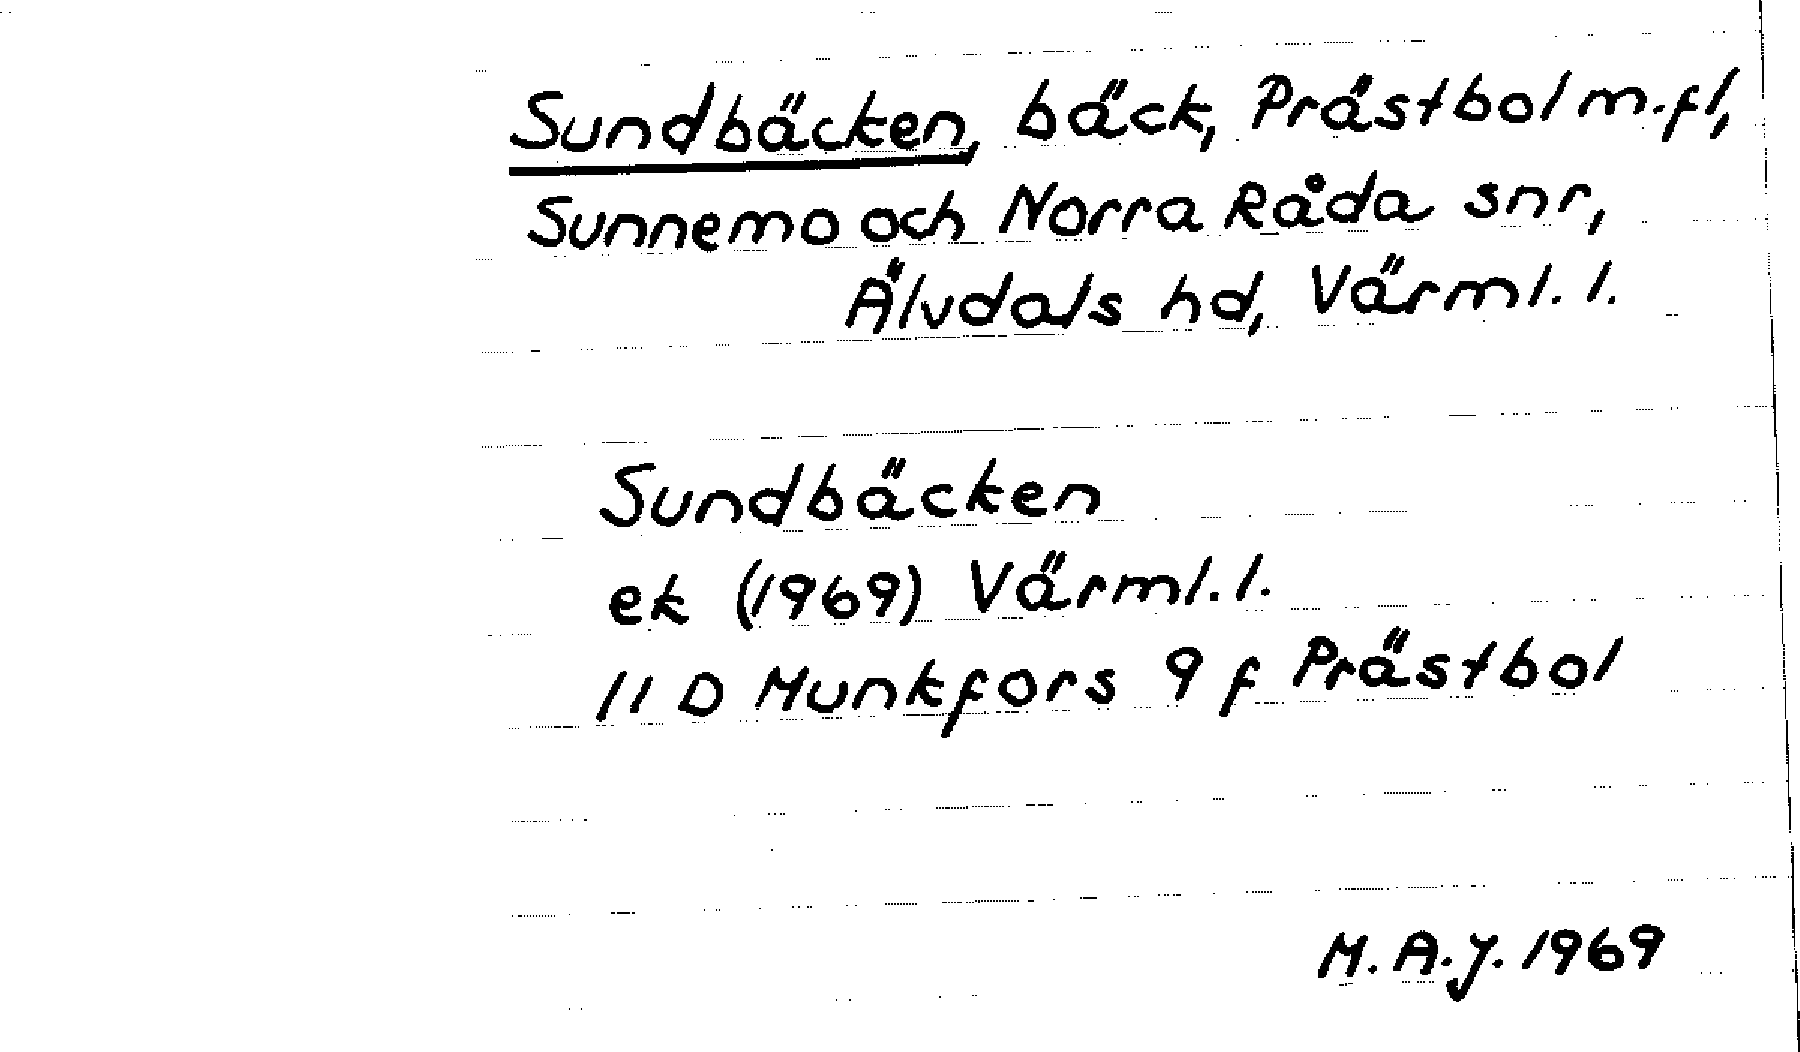 Sundbäcken, bäck, Prästbol m.fl,
Sunnemo och Norra Råda snr,
Älvdals hd, Värml. l.
Sundbäcken
ek (1969) Värml. l.
11 D Munkfors 9 f Prästbol
M. A. J. 1969